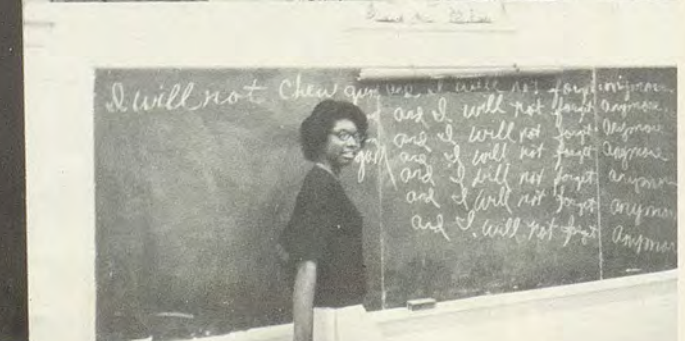 I will not chew gum and I will not forget anymore
and I will not forget anymore
and I will not forget anymore
gum and I will not forget anymore
and I will not forget anymore
and I will not forget anymore
and I will not forget anymore